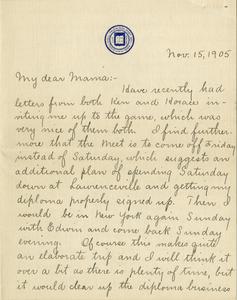 Nov. 15, 1905
My dear Mama:-
Have recently had
letters from both Ken and Horace in-
viting me up to the game, which was
very nice of them both. I find further-
more that the Meet is to come off Friday
instead of Saturday, which suggests an
additional plan of spending Saturday
down at Lawrenceville and getting my
diploma properly signed up. Then I
would be in New York again Sunday
with Edwin and come back Sunday
evening. Of course this makes quite
an elaborate trip and I will think it
over a bit as there is plenty of time, but
it would clear up the diploma business